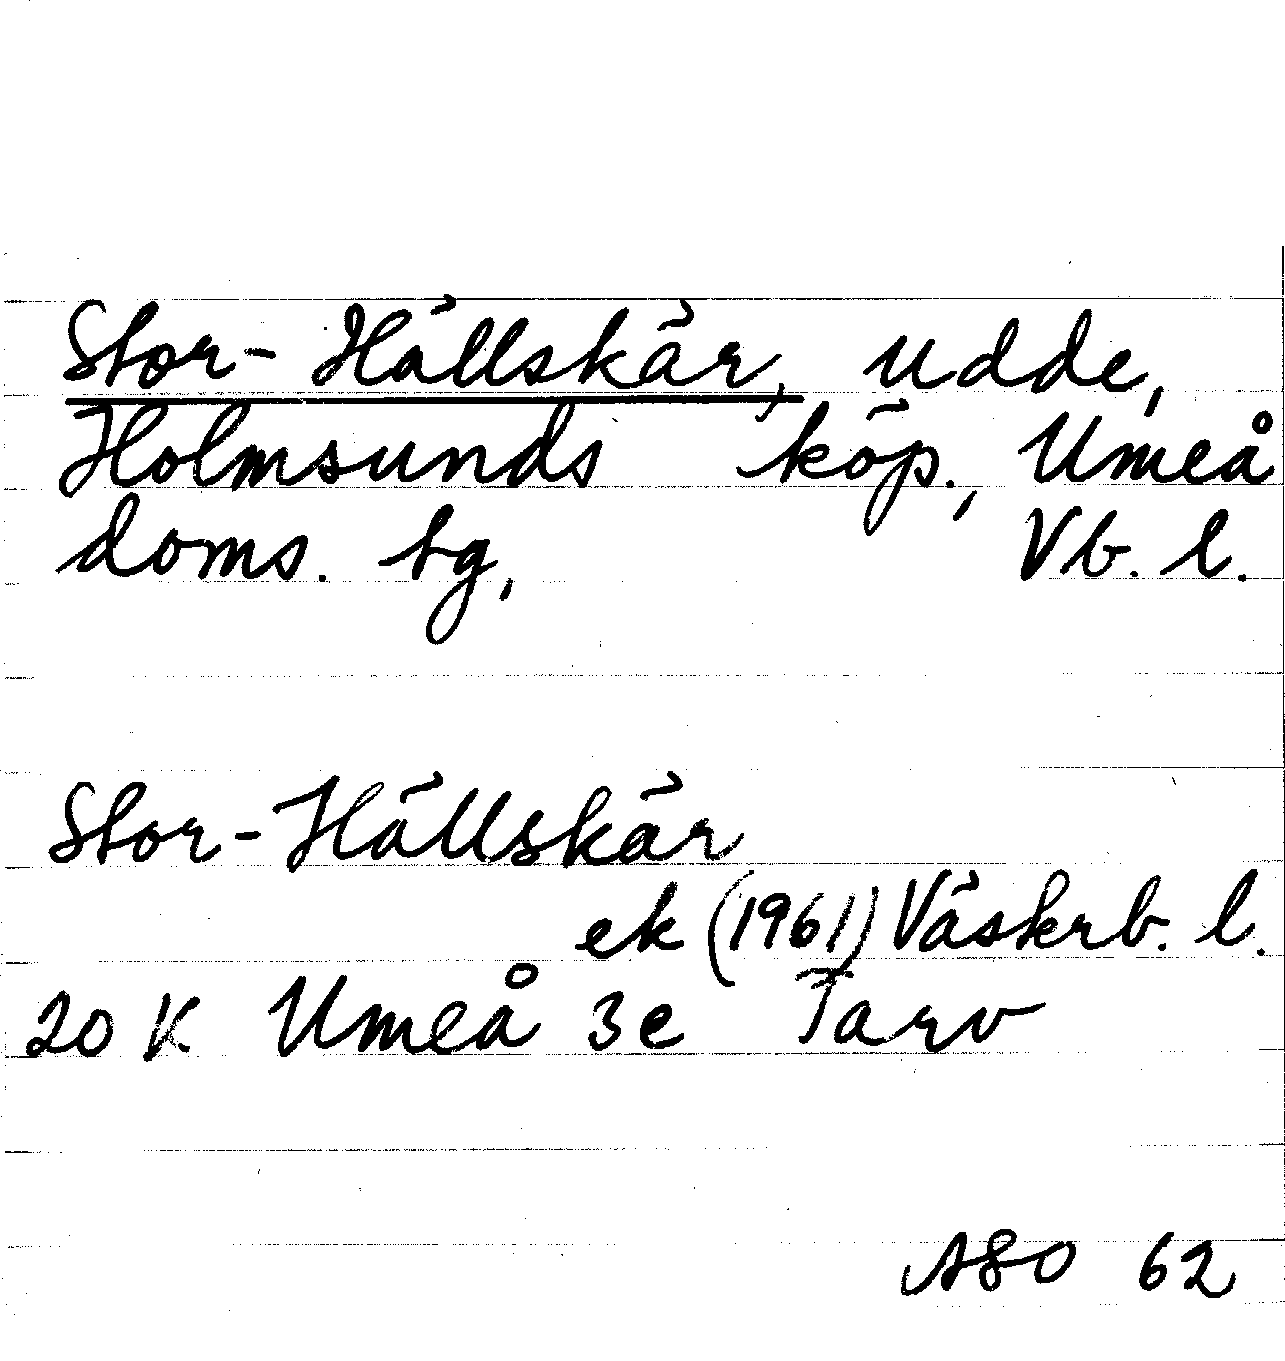 Stor-Hällskär, udde,
Holmsunds köp., Umeå
doms. tg, Vb. l.
Stor-Hällskär
ek (1961) Väskrb. l.
20 K Umeå 3e Tarv
ASO 62